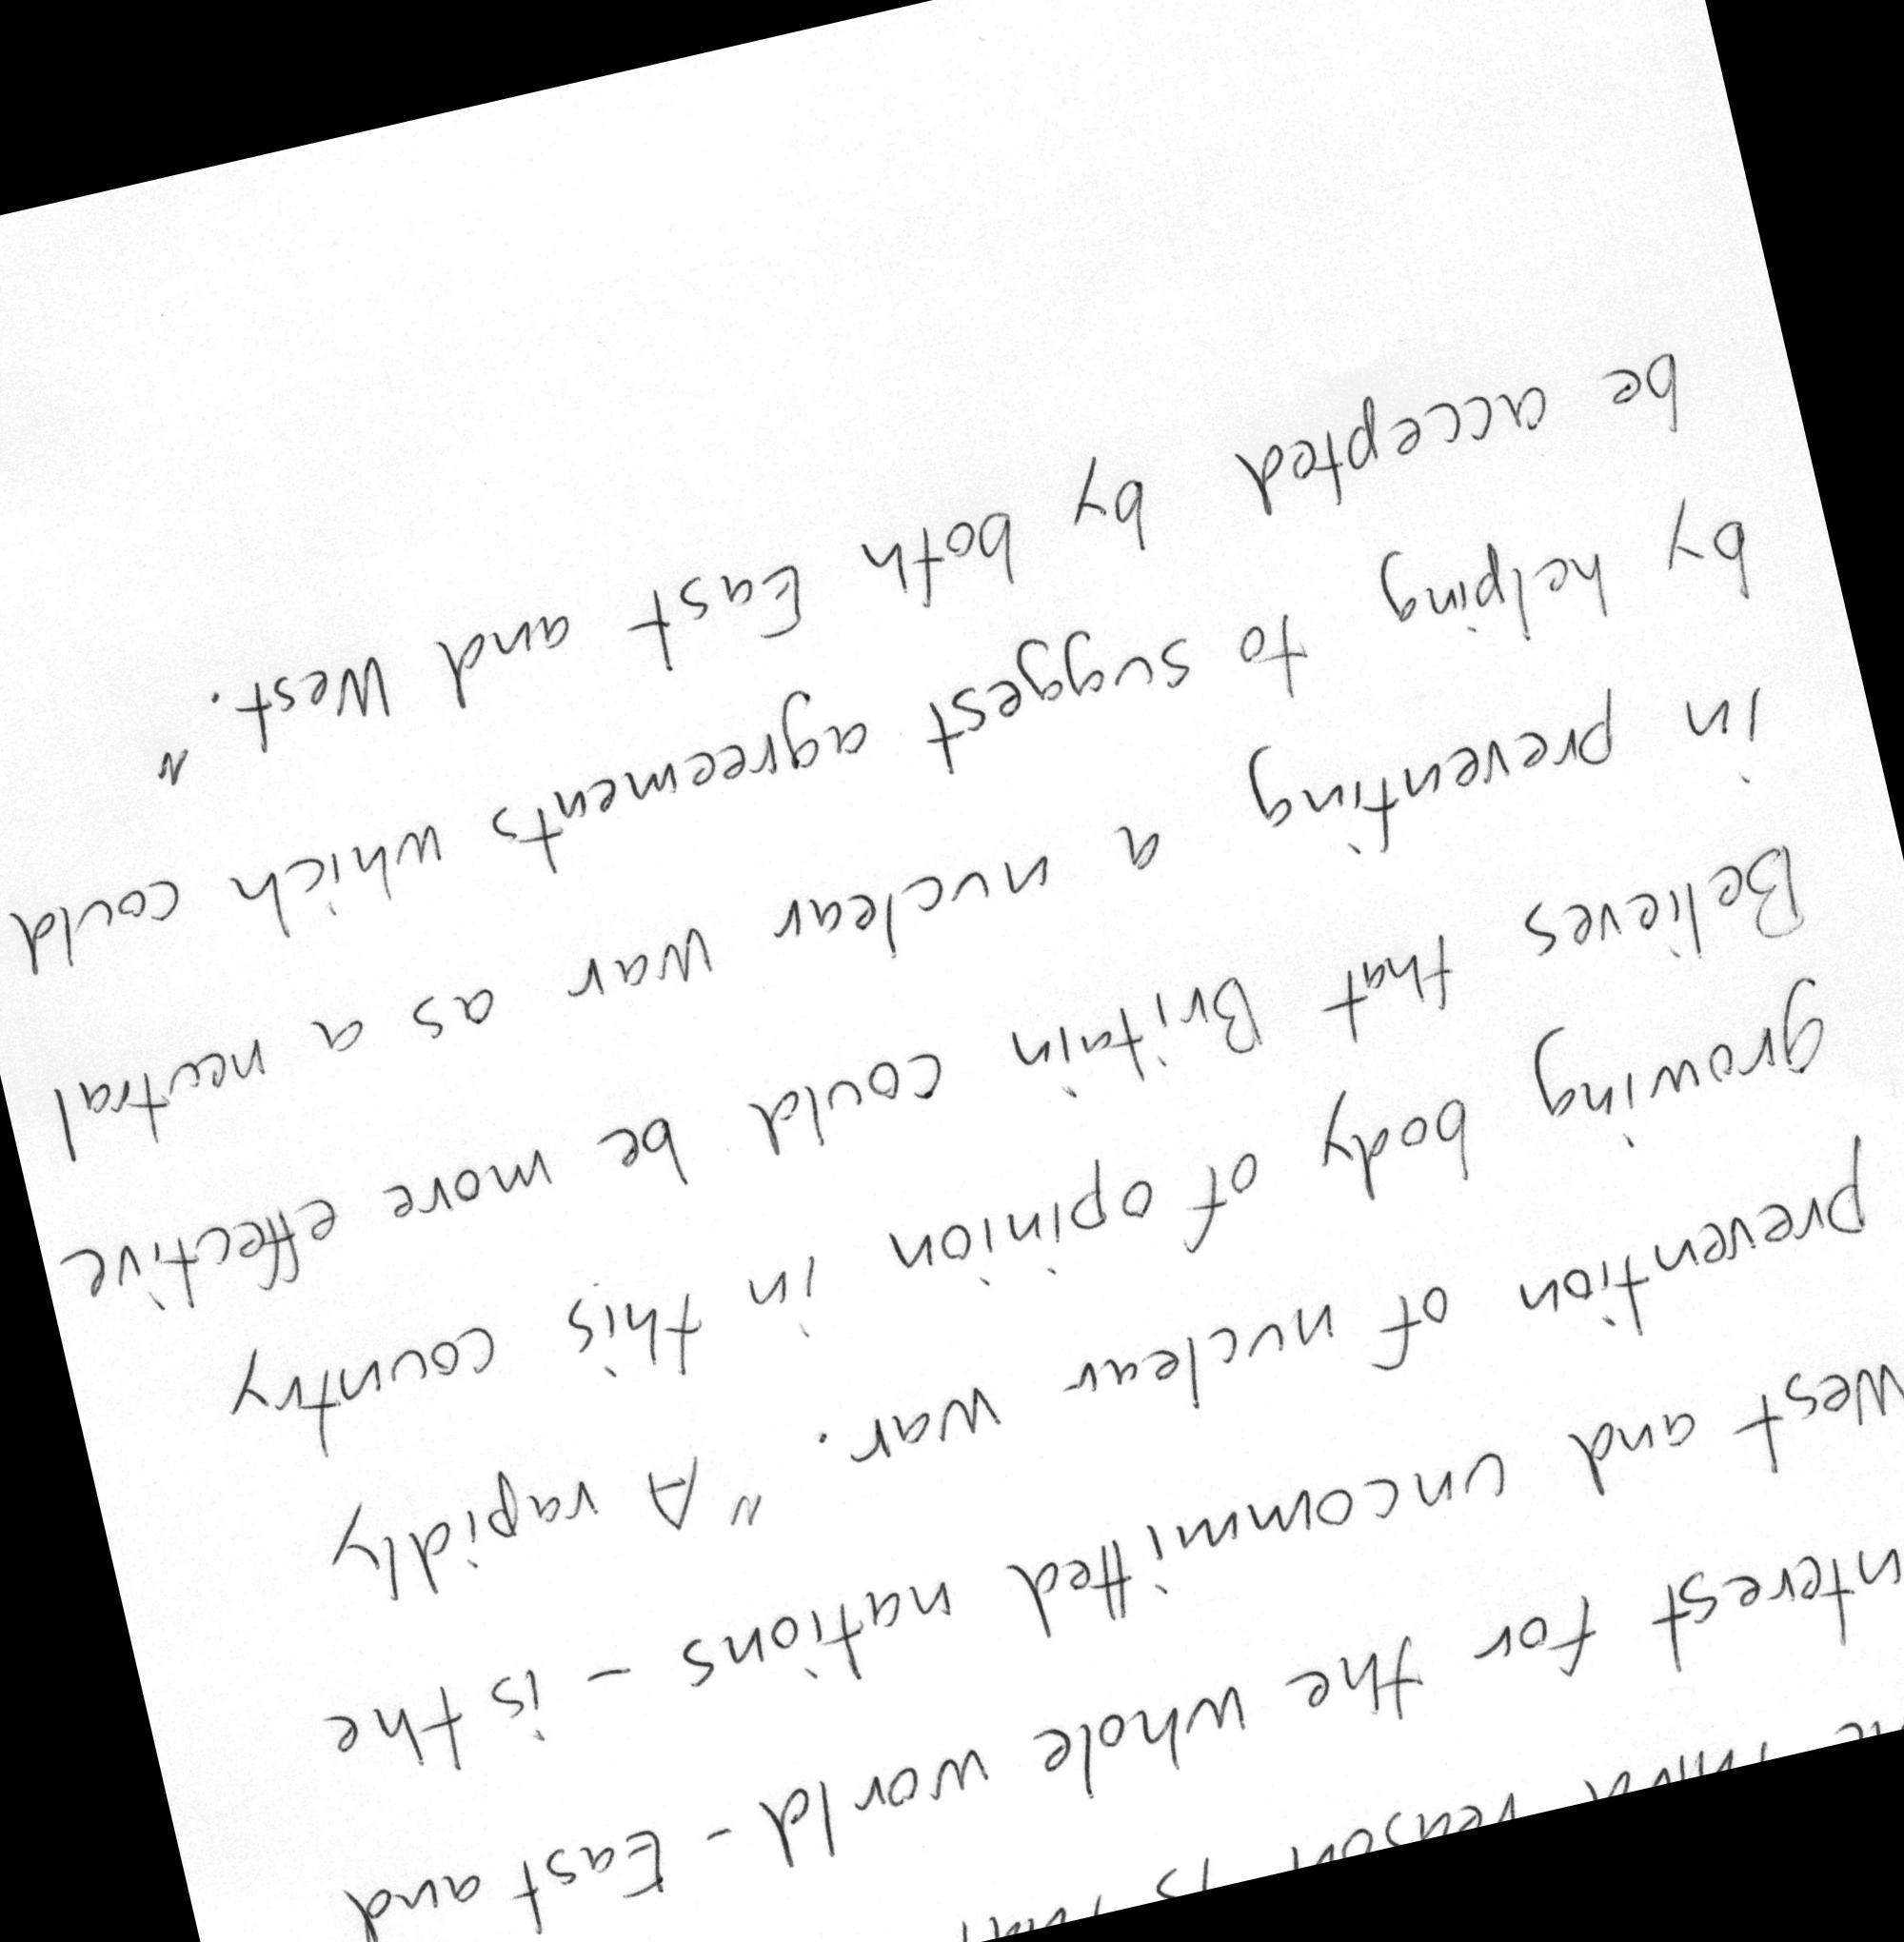 third reason is that
interest for the whole world - East and
West and uncommitted nations - is the
prevention of nuclear war. "A rapidly
growing body of opinion in this country
Believes that Britain could be more effective
in preventing a nuclear war as a neutral
by helping to suggest agreements which could
be accepted by both East and West."